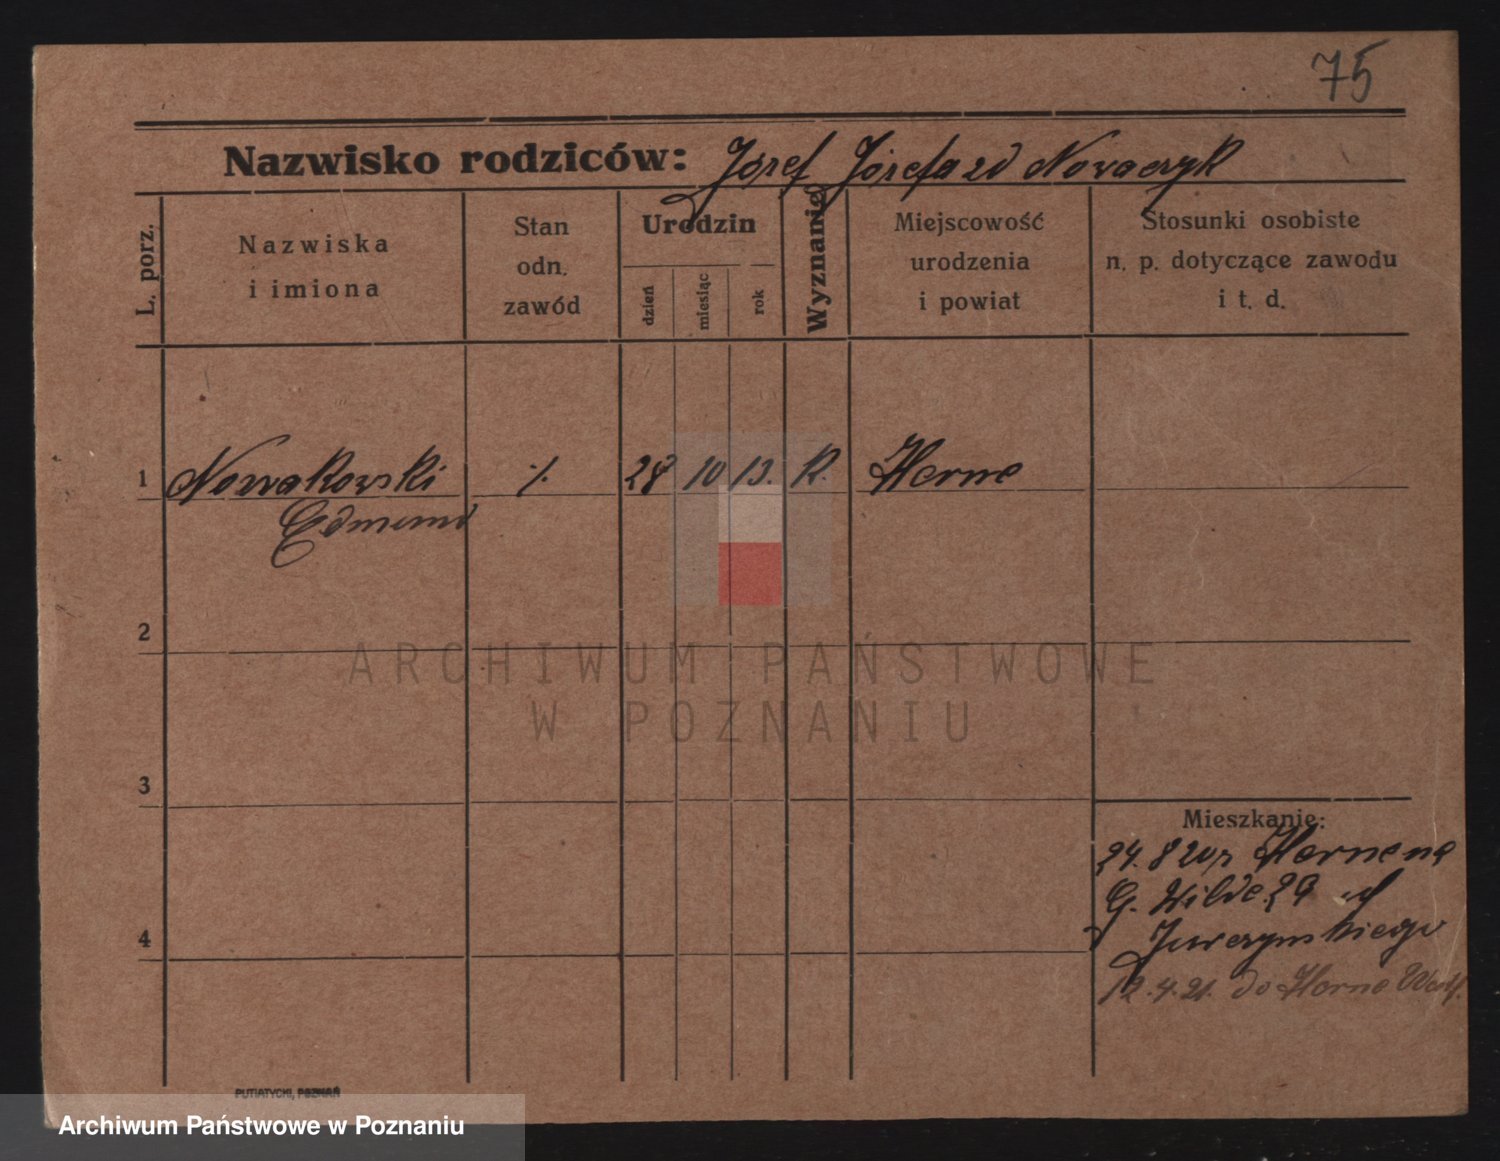 75
Nazwisko rodziców: Józef Józefa zd Nowaczyk
L. porz.
Nazwiska
i imiona
Stan
odn.
zawód
Urodzin
dzień
miesiąc
rok
Wyznanie
Miejscowość
urodzenia
i powiat
Stosunki osobiste
n. p. dotyczące zawodu
i t. d.
1 Nowakowski 28 10 R. Herne
Edmund
2
ARCHIWUM PAŃSTWOWE
W POZNANIU
3
Mieszkanie:
24. 8 20 z Herne na
G. Wilde 29
4
12.4.21. do Herne Westf.
PUTIATYCKI, POZNAŃ
Archiwum Państwowe w Poznaniu